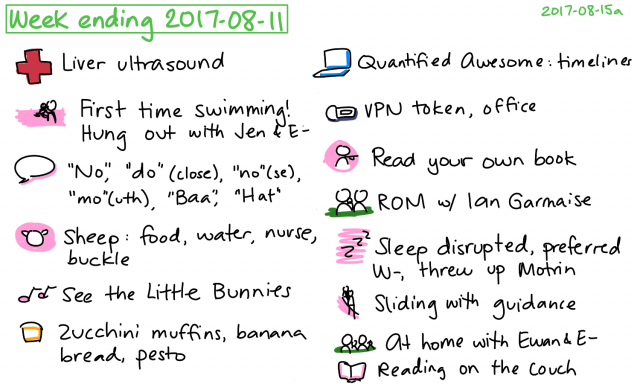 Week ending 2017-08-11
2017-08-15a
Liver ultrasound
First time swimming!
Hung out with Jen & E-
"No", "do" (close), "no"(se),
"mo"(uth), "Baa", "Hat"
Sheep: food, water, nurse,
buckle
See the Little Bunnies
Zucchini muffins, banana
bread, pesto
Quantified Awesome: timelines
VPN token, office
Read your own book
ROM w/ Ian Garmaise
zzz
Sleep disrupted, preferred
W-, threw up Motrin
Sliding with guidance
At home with Ewan & E-
Reading on the couch